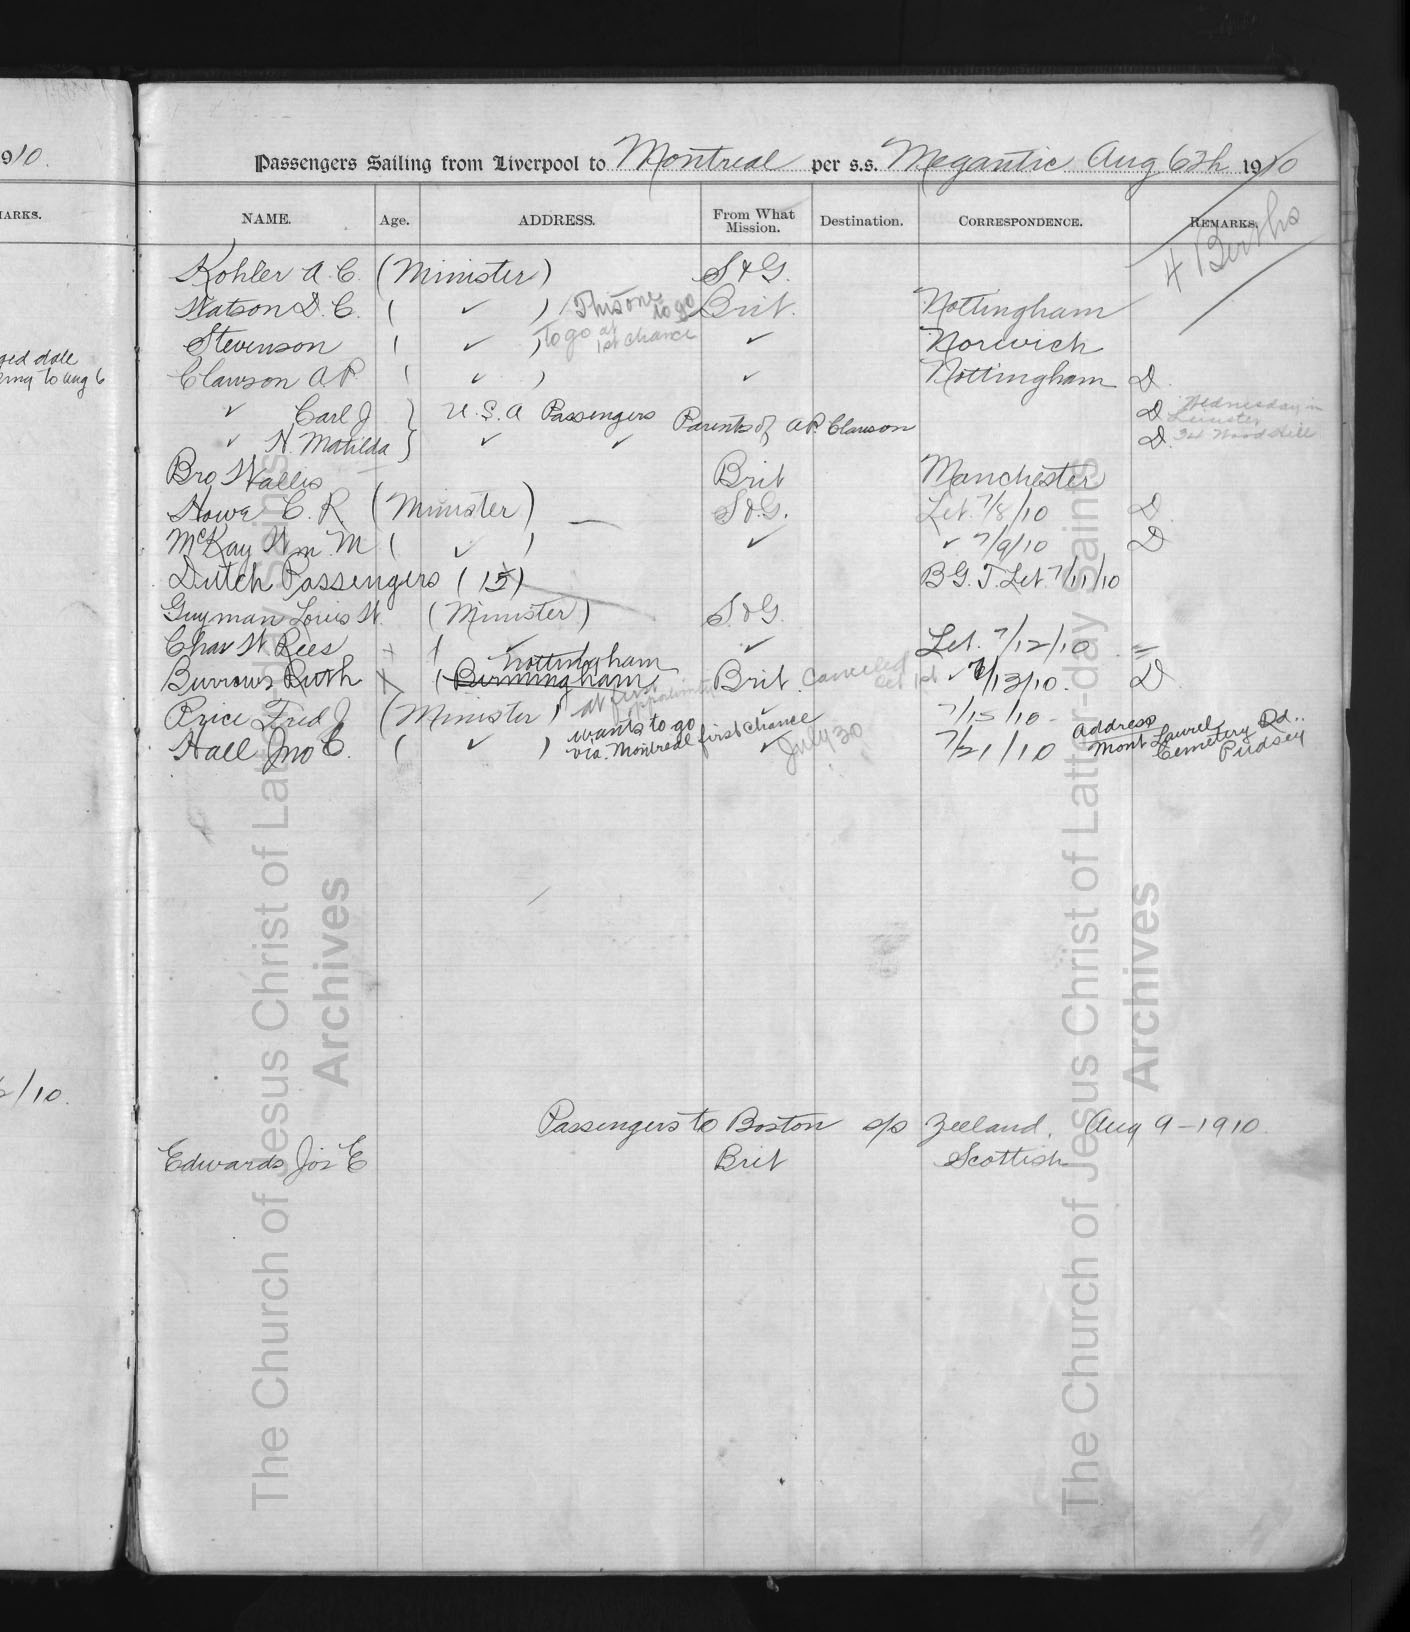 910.
Passengers Sailing from Liverpool to Montreal per s.s. Megantic Aug 6th 1910
ARKS.
NAME. Age. ADDRESS. From What Mission. Destination. CORRESPONDENCE. REMARKS.
4 Berths
Kohler A. C. (Minister) S & G.
Watson D. C. ( ✓ ) This one to go Brit. Nottingham
Stevenson ( ✓ ) To go at 1st chance ✓ Norwich
date
to Aug 6
Clawson A P. ( ✓ ) ✓ Nottingham D.
✓ Carl J } U. S. A Passengers Parents of A P. Clawson D. Wednesday in
✓ N. Matilda } ✓ ✓ D. Wood Hill
Bro Wallis Brit Manchester
Howe C. R (Minister) — S & G. Let. 7/8/10 D.
McKay Wm. M ( ✓ ) ✓ ✓ 7/9/10 D
Dutch Passengers (15) B G. T. Let. 7/11/10
Guyman Louis W. (Minister) S & G.
Chas W Rees + ( ✓ ✓ Let. 7/12/10 =
Nottingham
Burrows Ruth X (Birmingham Brit. Canceled Oct 1st ✓ 7/13/10. D.
at first opportunity
Price Fred J (Minister) ✓ 7/15/10 -
Hall Jno C. ( ✓ ) wants to go via. Montreal first chance ✓ July 30 7/21/10 Address Mont Laurel Cemetery Rd.. Pudsey
/10.
Passengers to Boston s/s Zeeland. Aug 9-1910.
Edwards Jos E Brit Scottish
The Church of Jesus Christ of Latter-day Saints
Archives
The Church of Jesus Christ of Latter-day Saints
Archives